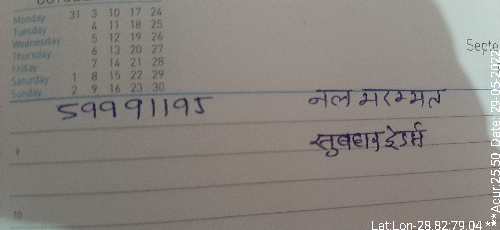 Monday 31 3 10 17 24
Tuesday 4 11 18 25
Wednesday 5 12 19 26
Thursday 6 13 20 27
Friday 7 14 21 28
Saturday 1 8 15 22 29
Sunday 2 9 16 23 30
Septe
59991195 नल मरम्मत
9
10
Lat Lon-28.82:79.04
***Acur:25.50 Date: 29-05-2022